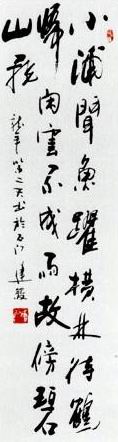 小浦聞魚躍橫林待鶴
歸閑雲不成雨故傍碧
山飛